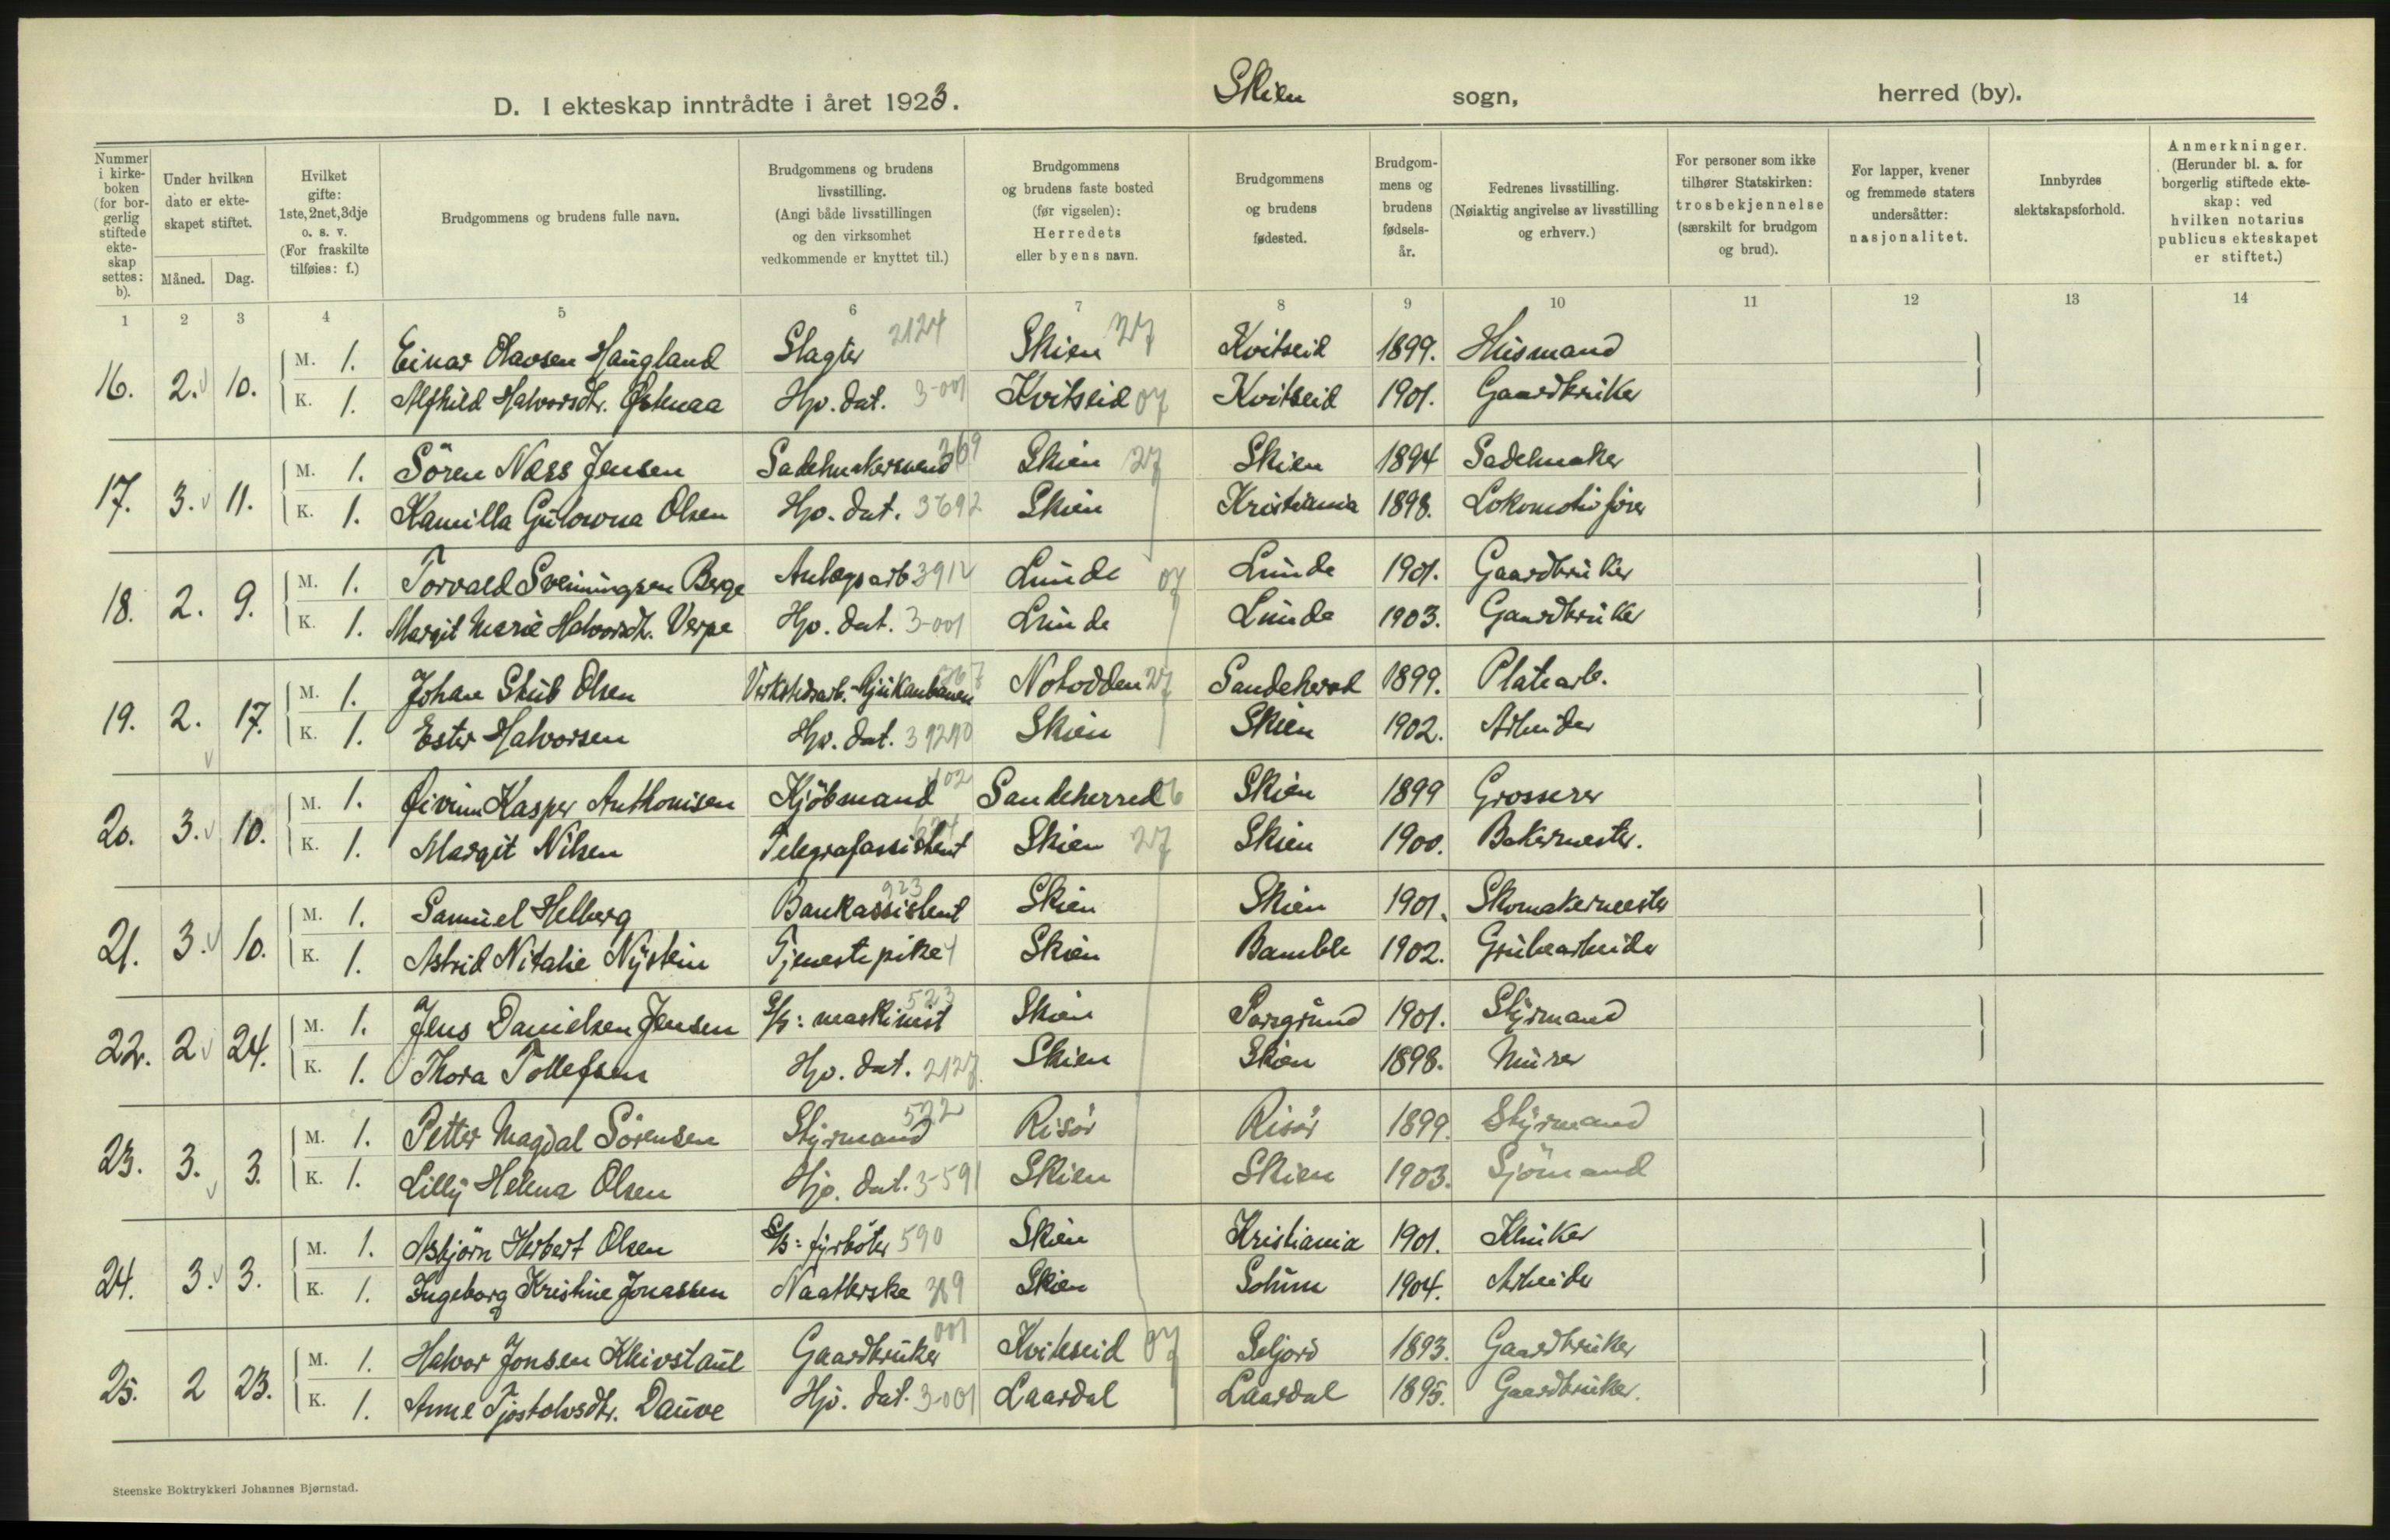 D. I ekteskap inntrådte i året 1923. Skien sogn, herred (by).
Nummer i kirke-boken (for bor-gerlig stiftede ekte-skap settes: b).
Under hvilken dato er ekte-skapet stiftet.
Måned. Dag.
Hvilket gifte: 1ste, 2net, 3dje o. s. v. (For fraskilte tilføies: f.)
Brudgommens og brudens fulle navn.
Brudgommens og brudens livsstilling. (Angi både livsstillingen og den virksomhet vedkommende er knyttet til.)
Brudgommens og brudens faste bosted (før vigselen): Herredets eller byens navn.
Brudgommens og brudens fødested.
Brudgom-mens og brudens fødsels-år.
Fedrenes livsstilling. (Nøiaktig angivelse av livsstilling og erhverv.)
For personer som ikke tilhører Statskirken: trosbekjennelse (særskilt for brudgom og brud).
For lapper, kvener og fremmede staters undersåtter: nasjonalitet.
Innbyrdes slektskapsforhold.
Anmerkninger. (Herunder bl. a. for borgerlig stiftede ekte-skap: ved hvilken notarius publicus ekteskapet er stiftet.)
1 2 3 4 5 6 7 8 9 10 11 12 13 14
16. 2. 10. M. 1. Einar Olavsen Haugland Slagter 2124 Skien 27 Kvitseid 1899. Husmand
K. 1. Alfhild Halvorsdtr. Hp. dat. 3-001 Kvitseid 07 Kvitseid 1901. Gaardbruker
17. 3. 11. M. 1. Sören Næss Jensen Sadelmakersvend 369 Skien 27 Skien 1894 Sadelmaker
K. 1. Kamilla Gulowna Olsen Hp. dat. 3692 Skien Kristiania 1898. Lokomotivfører
18. 2. 9. M. 1. Torvald Sveinungsen Berge Anlægsarb 3912 Lunde 07 Lunde 1901. Gaardbruker
K. 1. Margit Marie Halvorsdtr. Verpe Hp. dat. 3-001 Lunde Lunde 1903. Gaardbruker
19. 2. 17. M. 1. Johan Skub Olsen Verkstedsarb. Rjukanbanen Notodden 27 Sandeherad 1899. Platearb.
K. 1. Ester Halvorsen Hp. dat. 39290 Skien Skien 1902. Arbeider
20. 3. 10. M. 1. Øivinn Kasper Anthonisen Kjöbmand 402 Sandeherred 6 Skien 1899 Grosserer
K. 1. Margit Nilsen Telegrafassistent Skien 27 Skien 1900. Bakermester.
21. 3. 10. M. 1. Samuel Helberg Bankassistent 923 Skien Skien 1901. Skomakermester
K. 1. Astrid Nitalie Nystein Tjenestepike 4 Skien Bamble 1902. Grubearbeider
22. 2 24. M. 1. Jens Danielsen Jensen S/s: maskinist 523 Skien Porsgrund 1901. Styrmand
K. 1. Thora Tollefsen Hp. dat. 2127. Skien Skien 1898. Murer
23. 3. 3. M. 1. Petter Magdal Sörensen Styrmand 522 Risör Risör 1899. Styrmand
K. 1. Lilly Helena Olsen Hp. dat. 3-591 Skien Skien 1903. Sjömand
24. 3. 3. M. 1. Asbjörn Herbert Olsen S/s: fyrböter 590 Skien Kristiania 1901. Klinker
K. 1. Ingeborg Kristine Jonassen Naatlerske 389 Skien Solum 1904. Arbeider
25. 2 23. M. 1. Halvor Jonsen Kleivstaul Gaardbruker 001 Kviteseid 07 Seljord 1893. Gaardbruker
K. 1. Anne Tjostolvsdtr. Dauve Hp. dat. 3-001 Laardal Laardal 1895. Gaardbruker.
Steenske Boktrykkeri Johannes Bjørnstad.